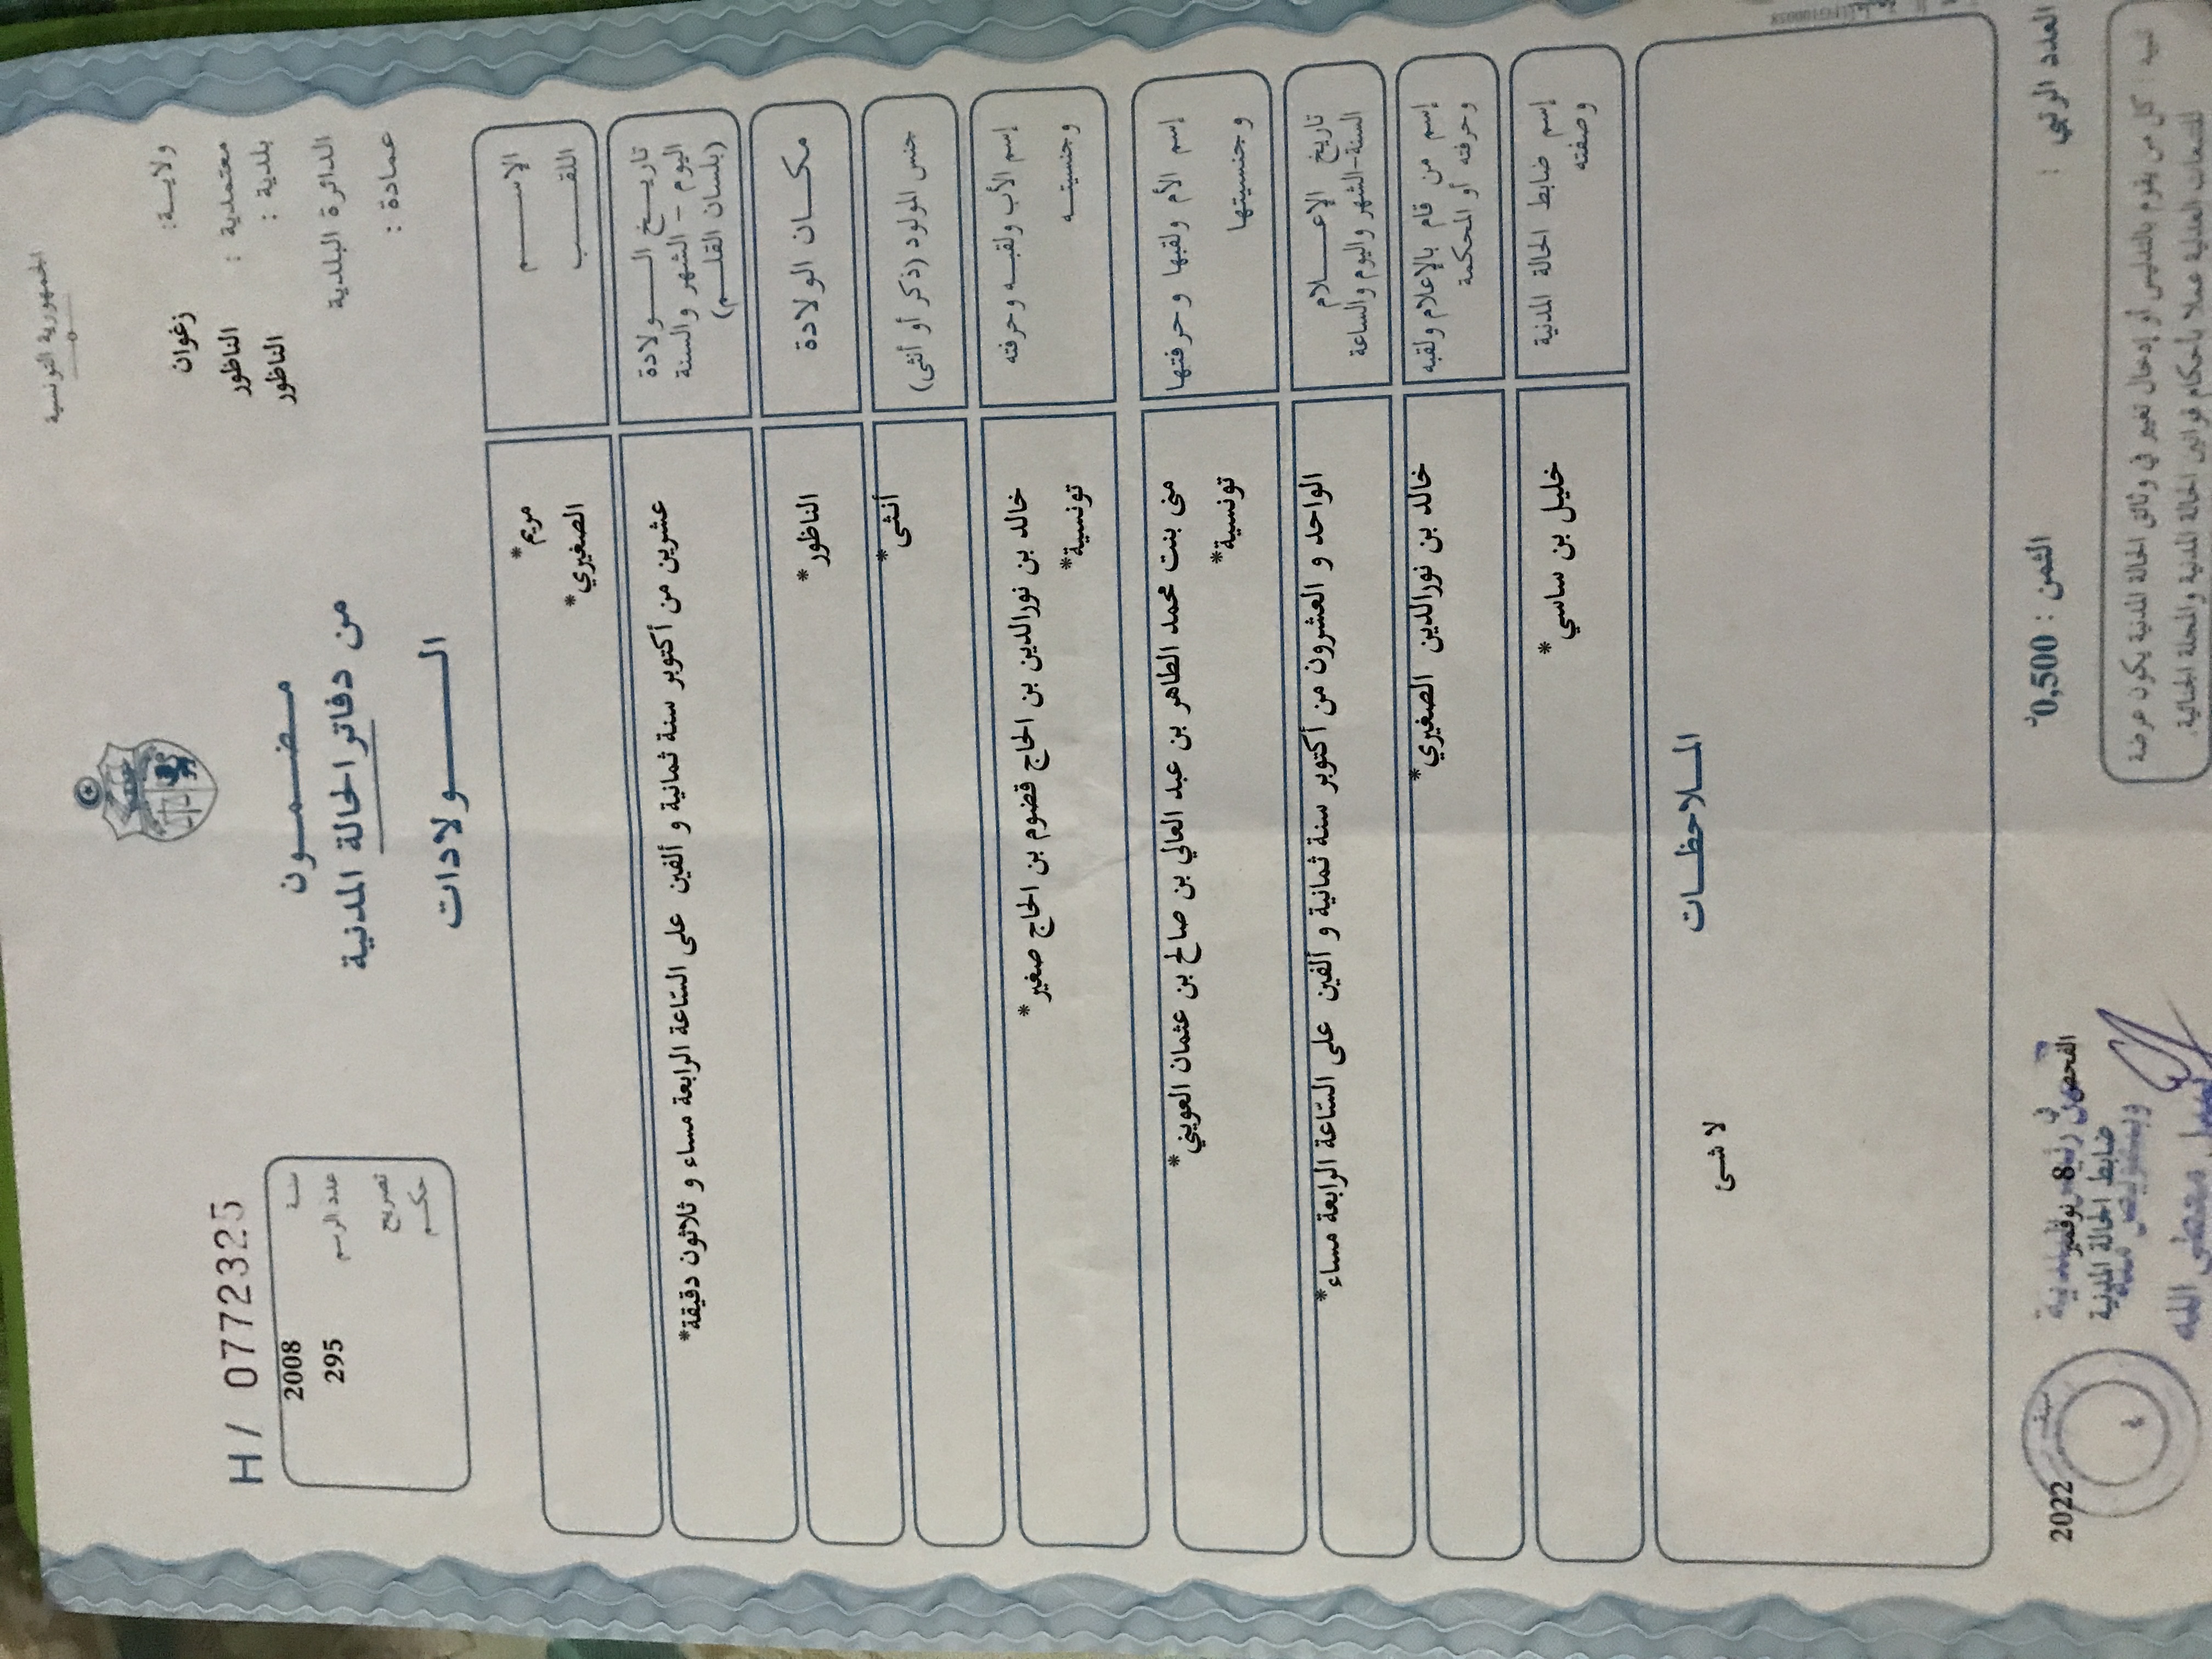 الجمهورية التونسية
ولايـة: زغوان
معتمدية : الناظور
بلدية : الناظور
الدائرة البلدية
عمادة :
مـضـمـون
من دفاتر الحالة المدنية
الـــولادات
H/ 07723225
سنـة 2008
عدد الرسم 295
تصريح
حكـم
الإســـم مريم*
اللقـــب الصغيري*
تاريـخ الــولادة
اليوم - الشهر والسنة
(بلسان القلـم)
عشرين من أكتوبر سنة ثمانية و ألفين على الساعة الرابعة مساء و ثلاثون دقيقة*
مكـان الولادة الناظور*
جنس المولود (ذكر أو أنثى) أنثى*
إسم الأب ولقبـه وحرفته خالد بن نورالدين بن الحاج قضوم بن الحاج صغير*
وجنسيتـه تونسية*
إسم الأم ولقبها وحرفتها منى بنت محمد الطاهر بن عبد العالي بن صالح بن عثمان العويني*
وجنسيتها تونسية*
تاريخ الإعـــلام
السنة-الشهر واليوم والساعة
الواحد و العشرون من أكتوبر سنة ثمانية و ألفين على الساعة الرابعة مساء*
إسم من قام بالإعلام ولقبه
وحرفته أو المحكمة
خالد بن نورالدين الصغيري*
إسم ضابط الحالة المدنية
وصفته
خليل بن ساسي*
المـلاحظـات
لا شئ
العدد الرتبي :
الثمن : 0,500د
الفحص في 8 نوفمبر 2022
ضابط الحالة المدنية
تنبيه : كل من يقوم بالتدليس أو إدخال تغيير في وثائق الحالة المدنية يكون عرضة
للتتبعات العدلية عملا بأحكام قوانين الحالة المدنية والمجلة الجنائية.